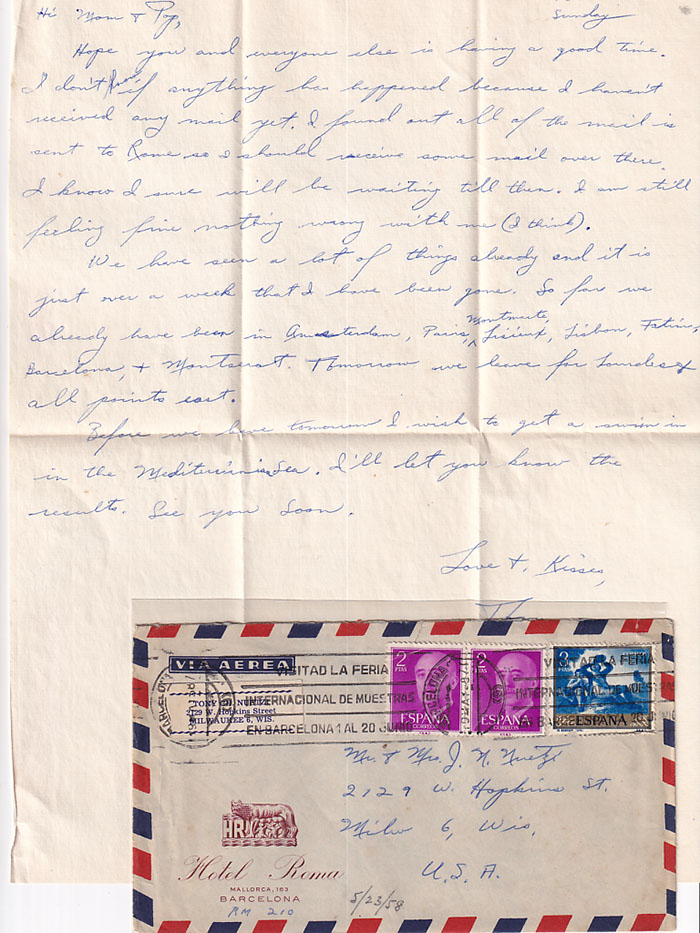 Hi Mom & Pop,
Sunday
Hope you and everyone else is having a good time.
I don't know if anything has happened because I haven't
received any mail yet. I found out all of the mail is
sent to Rome so I should receive some mail over there.
I know I sure will be waiting till then. I am still
feeling fine nothing wrong with me (I think).
We have seen a lot of things already and it is
just over a week that I have been gone. So far we
already have been in Amsterdam, Paris, Montmarte, Lisieux, Lisbon, Fatima,
Barcelona, & Montserat. Tomorrow we leave for Lourdes &
all points east.
Before we leave tomorrow I wish to get a swim in
in the Mediterrinia Sea. I'll let you know the
results. See you soon.
Love & Kisses,
VIA AEREA
TONY
2129 W. Hopkins Street
MILWAUKEE 6, WIS.
BARCELONA
VISITAD LA FERIA
INTERNACIONAL DE MUESTRAS
EN BARCELONA 1 AL 20 JUNIO
2 PTAS
ESPAÑA
CORREOS
2 PTAS
ESPAÑA
CORREOS
3 PTAS
ESPAÑA
BARCELONA
VISITAD LA FERIA
INTERNACIONAL DE MUESTRAS
EN BARCELONA 1 AL 20 JUNIO
Mr. & Mrs. J. N.
2129 W. Hopkins St.
Milw 6, Wis.
U.S.A.
HR
Hotel Roma
MALLORCA, 163
BARCELONA
RM 210
5/23/58